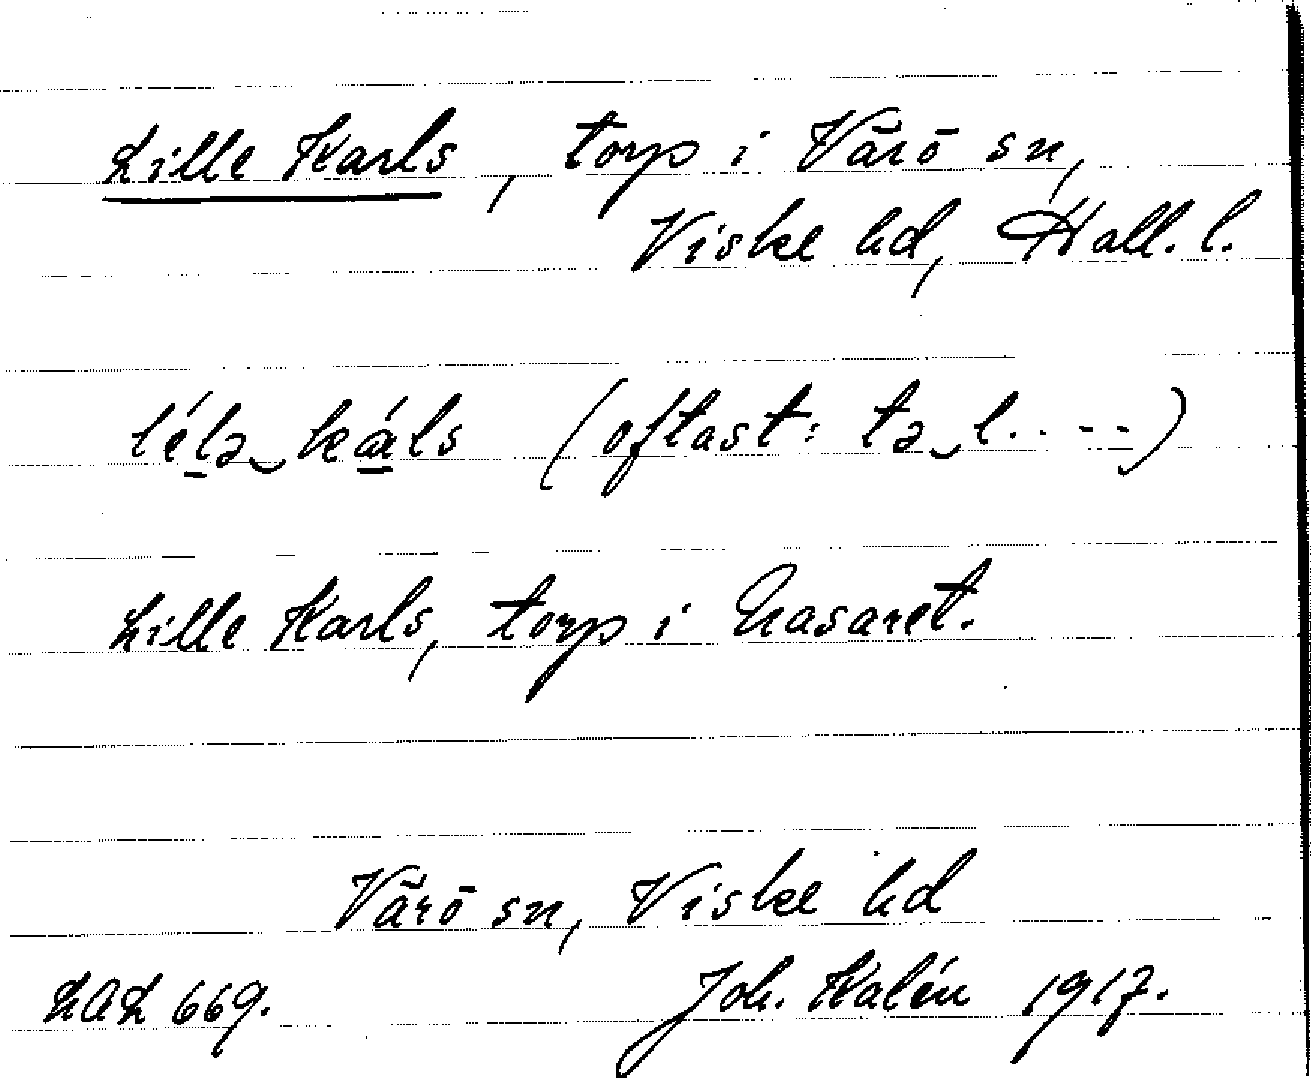 Lille Karls, torp i Värö sn,
Viske hd, Hall. l.
lélə‿kάls (oftast: tə‿l..--)
Lille Karls, torp i Nasaret.
Värö sn, Viske hd
LAL 669. Joh. Kalén 1917.